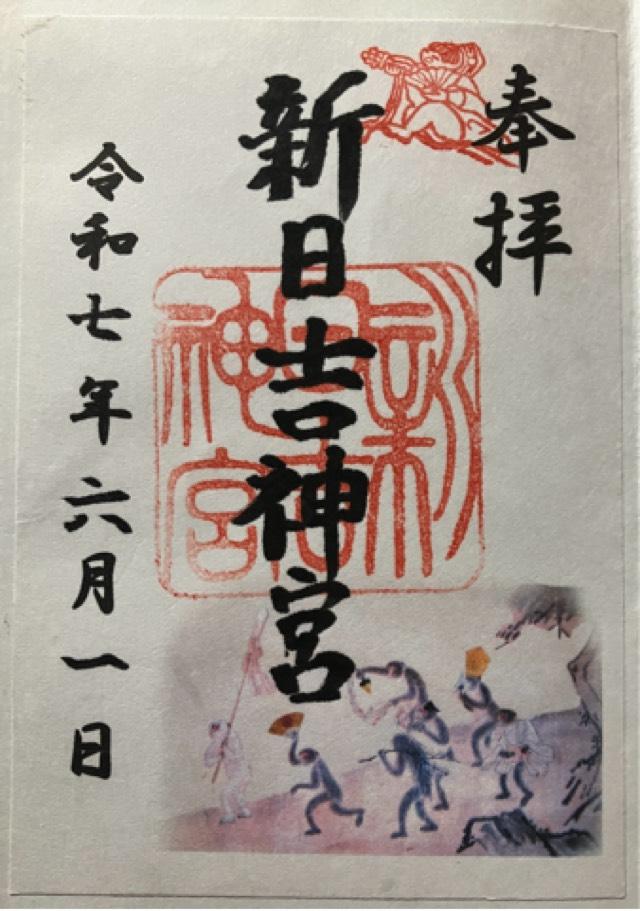 奉拝
新日吉神宮
新日吉神宮
令和七年六月一日